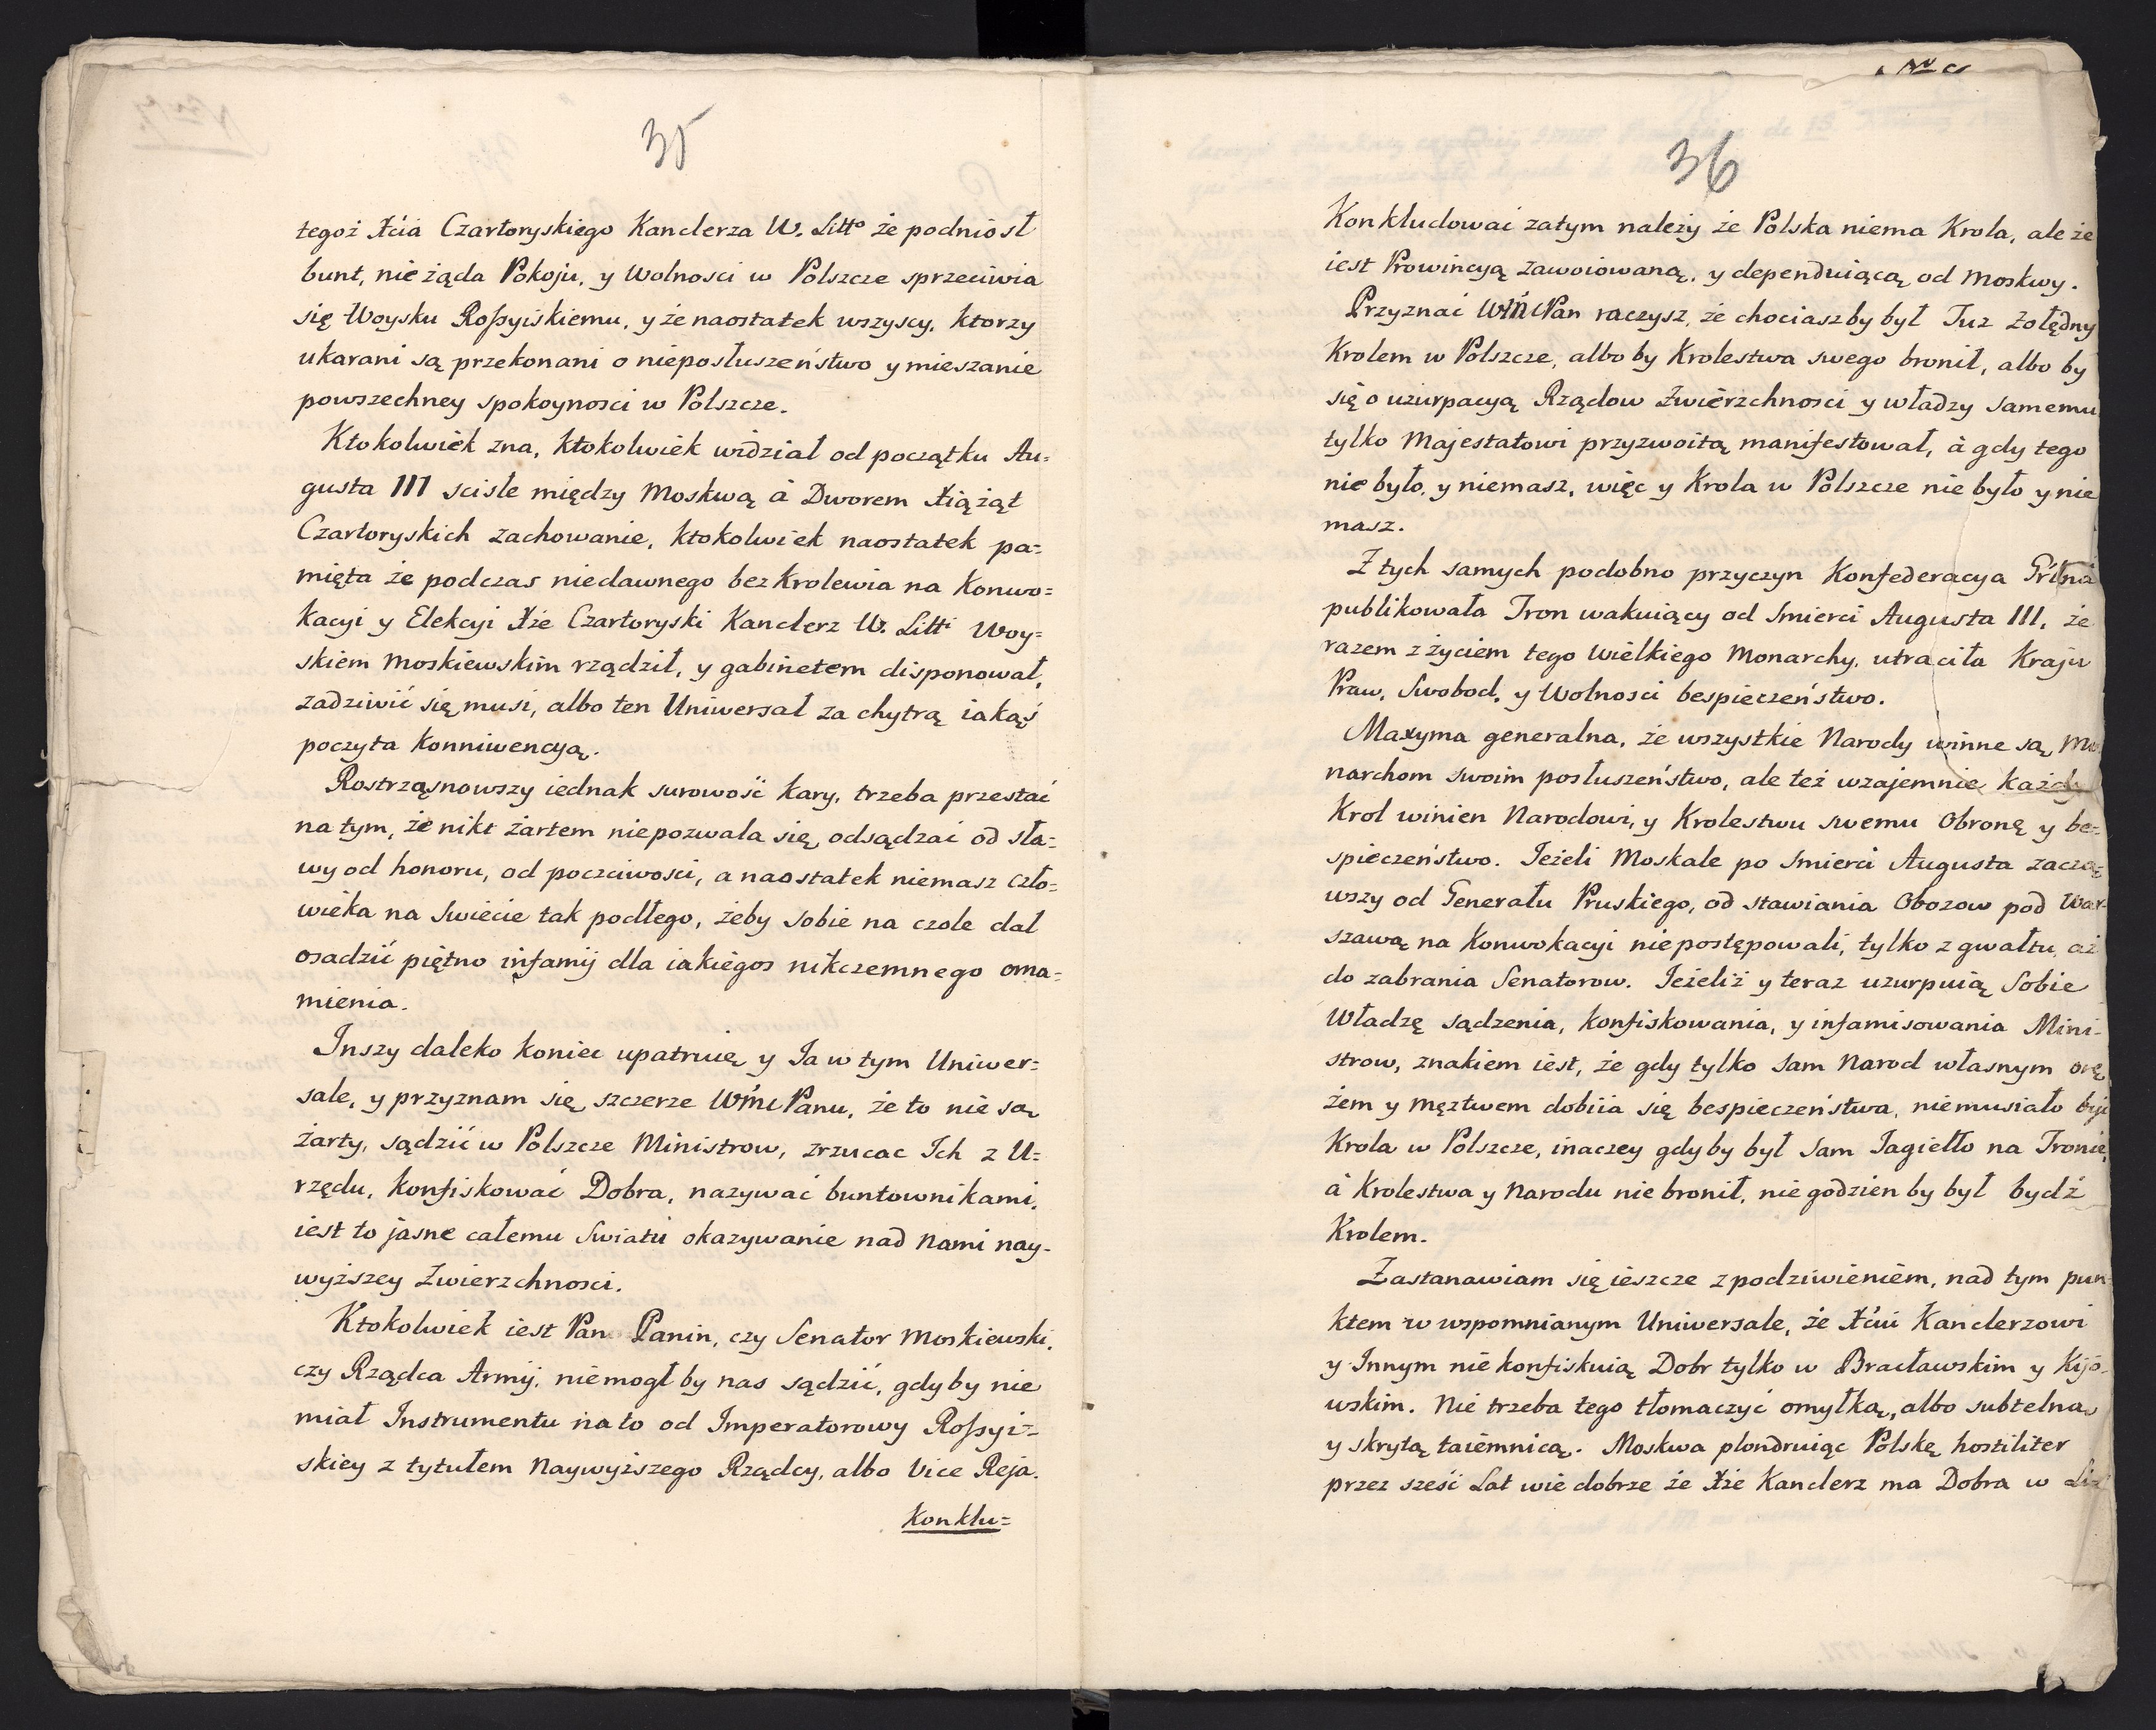 35
tegoż Xcia Czartoryskiego Kanclerza W. Litto że podniosł
bunt, nie żąda Pokoju, y Wolnosci w Polszcze sprzeciwia
się Woysku Rossyiskiemu, y że naostatek wszyscy, ktorzy
ukarani są przekonani o nieposłuszeństwo y mieszanie
powszechney spokoynosci w Polszcze.
Ktokolwiek zna, ktokolwiek widział od początku Au=
gusta III scisłe między Moskwą à Dworem Xiążąt
Czartoryskich zachowanie, ktokolwiek naostatek pa=
mięta że podczas niedawnego bezkrolewia na Konwo=
kacyi y Elekcyi Xże Czartoryski Kanclerz W. Litti Woy=
skiem Moskiewskim rządził, y gabinetem disponował,
zadziwić się musi, albo ten Uniwersał za chytrą iakąś
poczyta Konniwencyą.
Rostrząsnowszy iednak surowość kary, trzeba przestać
na tym, że nikt żartem niepozwala się odsądzać od sła=
wy od honoru, od poczciwosci, a naostatek niemasz czło=
wieka na Swiecie tak podłego, żeby sobie na czole dał
osadzić piętno infamij dla iakiegos nikczemnego oma=
mienia.
Inszy daleko koniec upatruię y Ja w tym Uniwer=
sale, y przyznam się szczerze WMc Panu, że to nie są
żarty, sądzić w Polszcze Ministrow, zrzucac Ich z U=
rzędu, konfiskować Dobra, nazywać buntownikami,
iest to jasne całemu Swiatu okazywanie nad Nami nay=
wyższey Zwierzchnosci.
Ktokolwiek iest Pan Panin, czy Senator Moskiewski,
czy Rządca Armij, niemogł by nas sądzić, gdyby nie
miał Instrumentu na to od Imperatorowy Rossyi=
skiey z tytułem Naywyższego Rządcy, albo Vice Reja.
Konklu=
36
Konkludować zatym należy że Polska niema Krola, ale że
iest Prowincyą zawoiowaną, y dependuiącą od Moskwy.
Przyznać WMPan raczysz, że chociaszby był Tuz Żołędny
Krolem w Polszcze, albo by Krolestwa swego bronił, albo by
się o uzurpacyą Rządow Zwierzchnosci y władzy samemu
tylko Majestatowi przyzwoitą manifestował, à gdy tego
nie było, y niemasz, więc y Krola w Polszcze nie było y nie
masz.
Z tych samych podobno przyczyn Konfederacya Grlna
publikowała Tron wakuiący od Smierci Augusta III, że
razem z życiem tego Wielkiego Monarchy, utraciła Kraju
Praw, Swobod, y Wolnosci bespieczeństwo.
Maxyma generalna, że wszystkie Narody winne są Mo
narchom swoim posłuszeństwo, ale też wzajemnie każdy
Krol winien Narodowi, y Krolestwu swemu Obronę y be=
spieczeństwo. Jeżeli Moskale po Smierci Augusta zaczą
wszy od Generału Pruskiego, od stawiania Obozow pod War=
szawą na Konwokacyi niepostępowali, tylko z gwałtu, aż
do zabrania Senatorow. Jeżeliż y teraz uzurpuią Sobie
Władzę sądzenia, konfiskowania, y infamisowania Mini=
strow, znakiem iest, że gdy tylko sam Narod własnym orę
żem y męztwem dobiia się bespieczeństwa, niemusiało być
Krola w Polszcze, inaczey gdyby był sam Jagiełło na Tronie,
à Krolestwa y Narodu nie bronił, niegodzien by był bydź
Krolem.
Zastanawiam się ieszcze z podziwieniem, nad tym pun=
ktem w wspomnianym Uniwersale, że Xciu Kanclerzowi
y Innym nie konfiskuią Dobr tylko w Bracławskim y Kijo=
wskim. Nie trzeba tego tłomaczyć omyłką, albo subtelną
y skrytą taiemnicą. Moskwa plondruiąc Polskę hostiliter
przez sześć Lat wie dobrze że Xże Kanclerz ma Dobra w